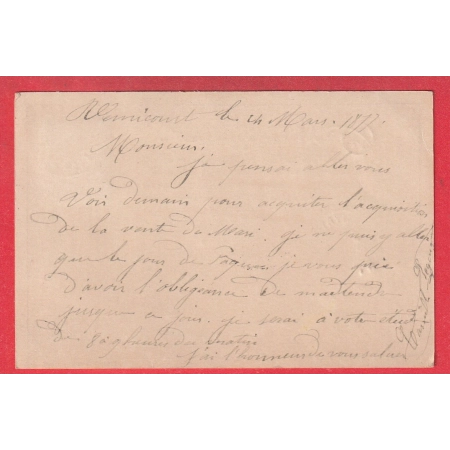 le 24 Mars 1877.
Monsieur.
je pensai allez vous
Voir demain pour acquiter l'acquisition
de la vente de Mari. je ne puis y aller
que le jour de je vous prie
d'avoir l'obligeance de m'attendre
jusque ce jour. je serai à votre étude
de 8 à 9 heures du matin
j'ai l'honneur de vous saluer